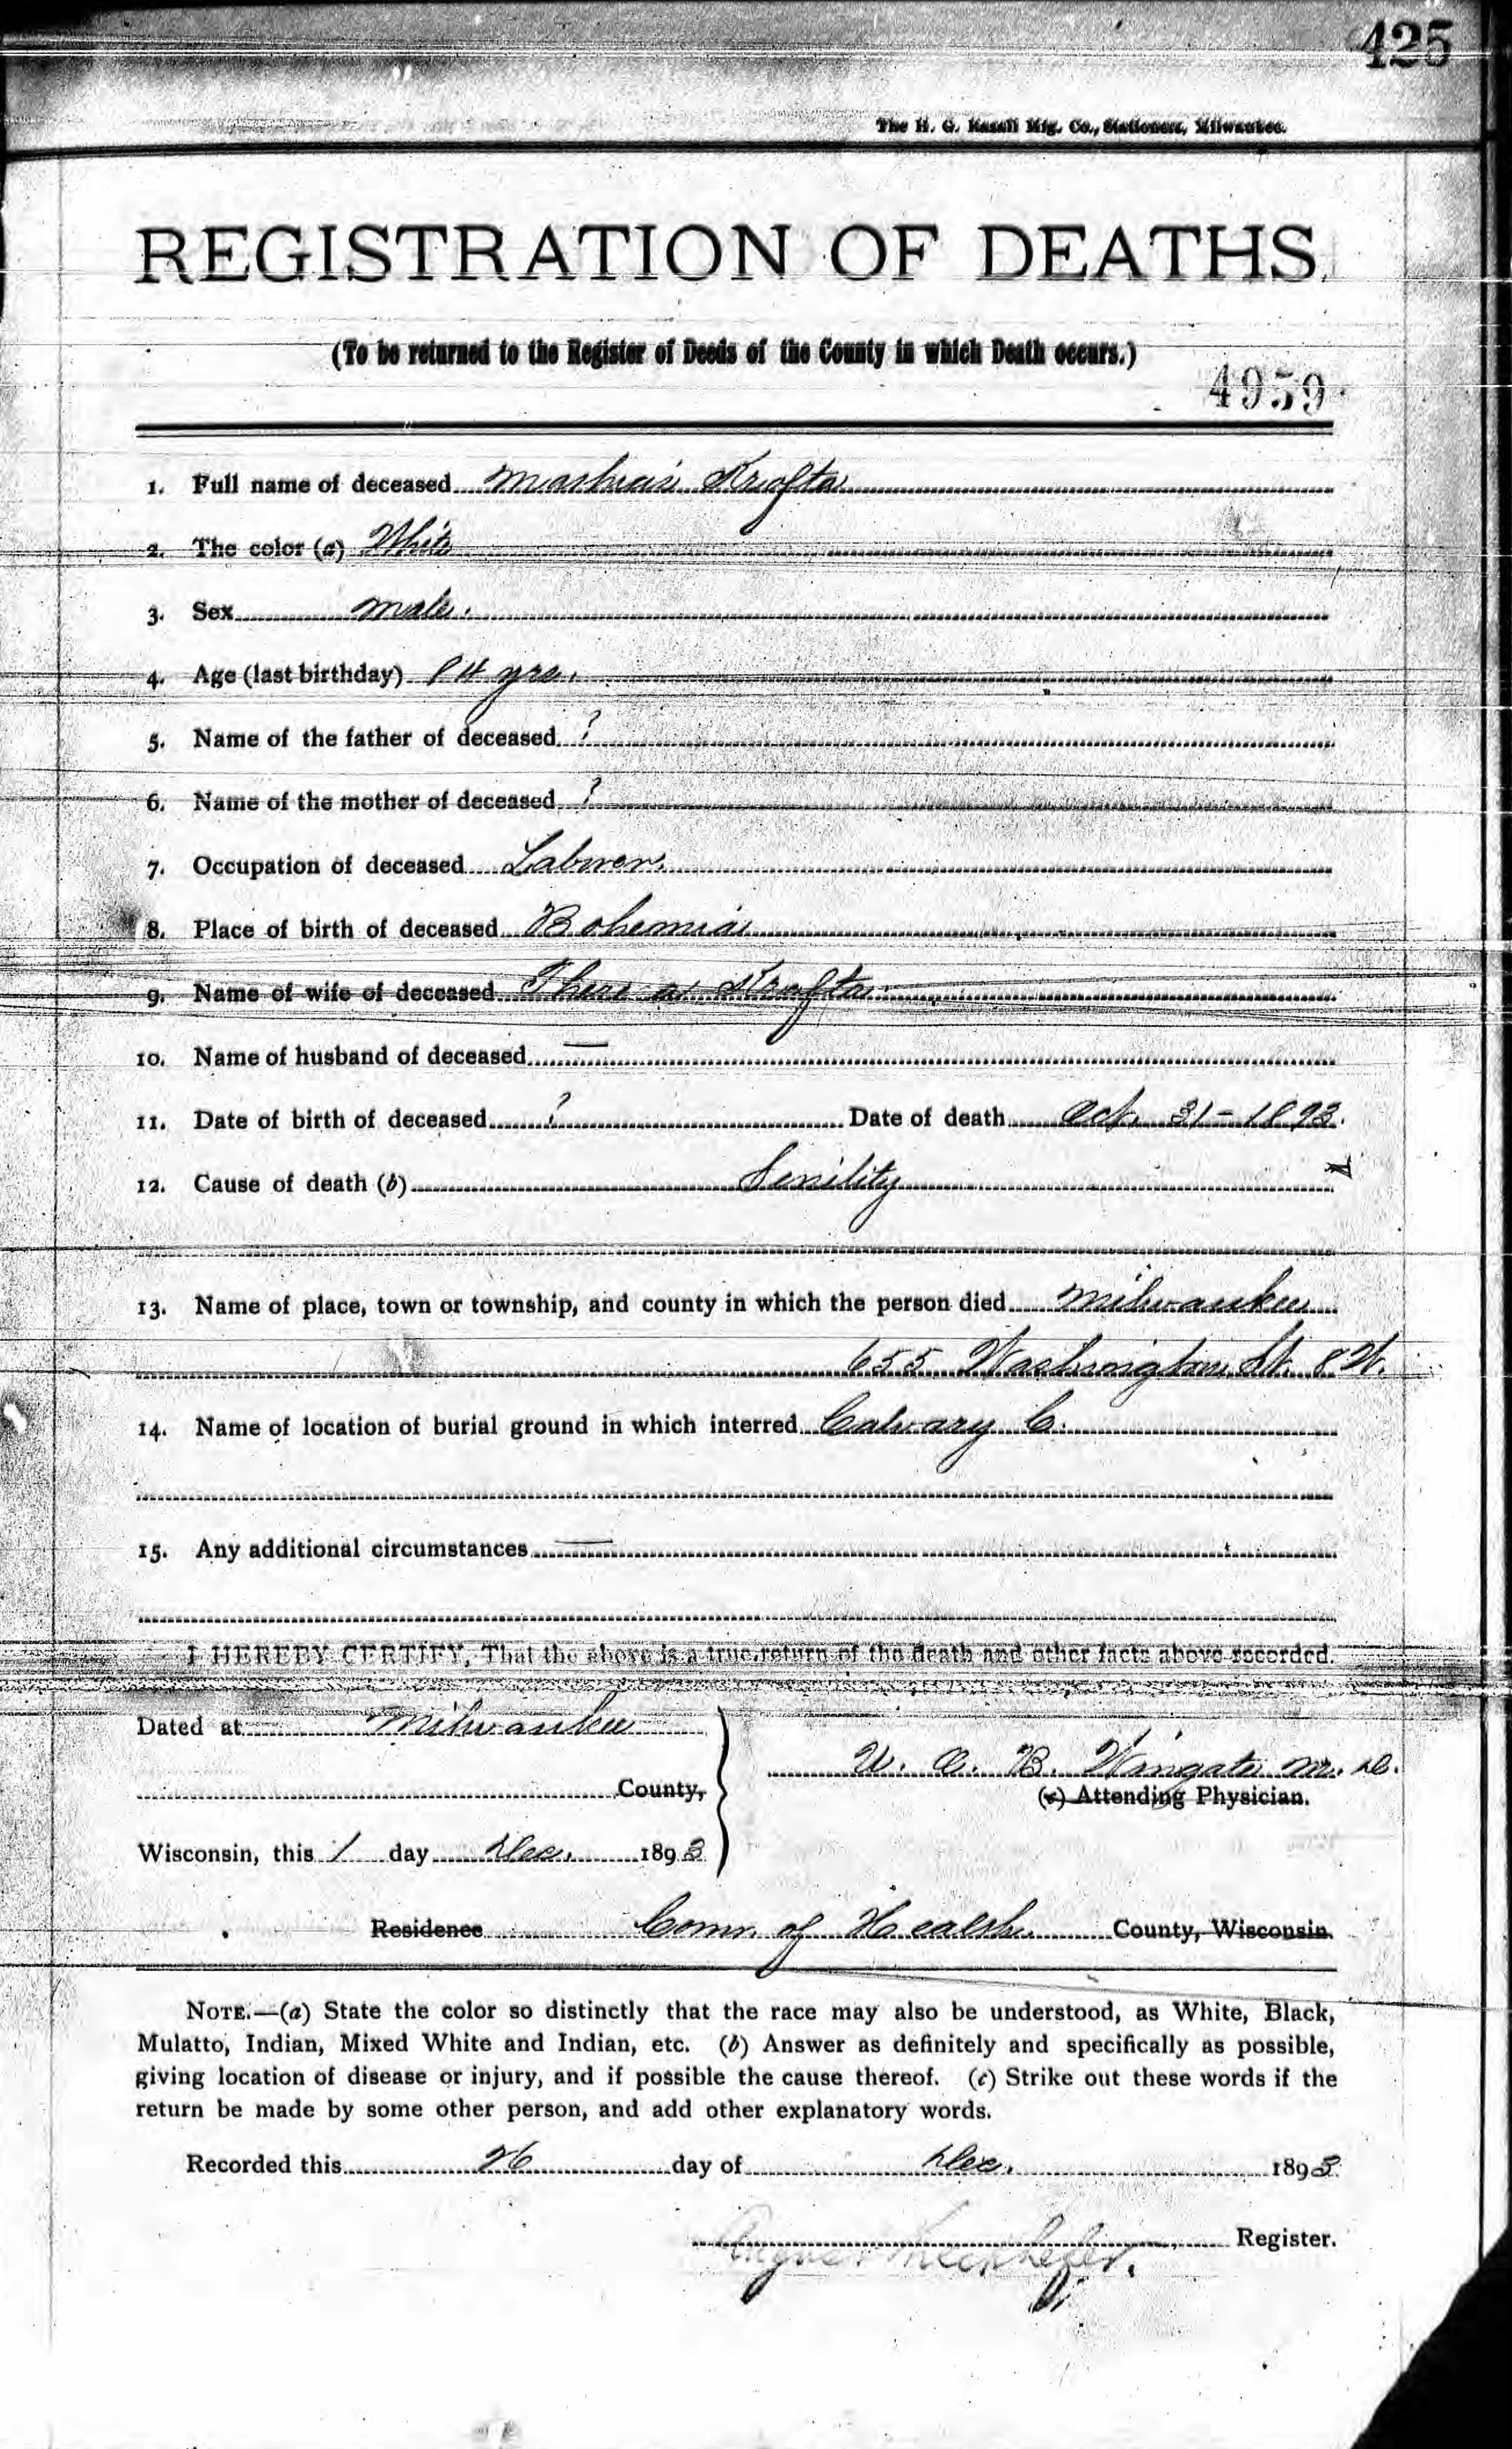 425
The H. G. Razall Mfg. Co., Stationers, Milwaukee.
REGISTRATION OF DEATHS.
(To be returned to the Register of Deeds of the County in which Death occurs.)
4959
1. Full name of deceased Mathias Krofta
2. The color (a) White
3. Sex male.
4. Age (last birthday) 84 yrs.
5. Name of the father of deceased ?
6. Name of the mother of deceased ?
7. Occupation of deceased Laborer.
8. Place of birth of deceased Bohemia
9. Name of wife of deceased Theresa Krofta
10. Name of husband of deceased —
11. Date of birth of deceased ? Date of death Oct. 31 - 1893.
12. Cause of death (b) Senility
13. Name of place, town or township, and county in which the person died Milwaukee
655 Washington St. 8 W.
14. Name of location of burial ground in which interred Calvary C.
15. Any additional circumstances —
I HEREBY CERTIFY, That the above is a true return of the death and other facts above recorded.
Dated at Milwaukee
U. O. B. Wingate M. D.
County,
(c) Attending Physician.
Wisconsin, this 1 day Dec. 1893
Residence Comr. of Health County, Wisconsin.
NOTE.—(a) State the color so distinctly that the race may also be understood, as White, Black,
Mulatto, Indian, Mixed White and Indian, etc. (b) Answer as definitely and specifically as possible,
giving location of disease or injury, and if possible the cause thereof. (c) Strike out these words if the
return be made by some other person, and add other explanatory words.
Recorded this 26 day of Dec. 1893
Register.